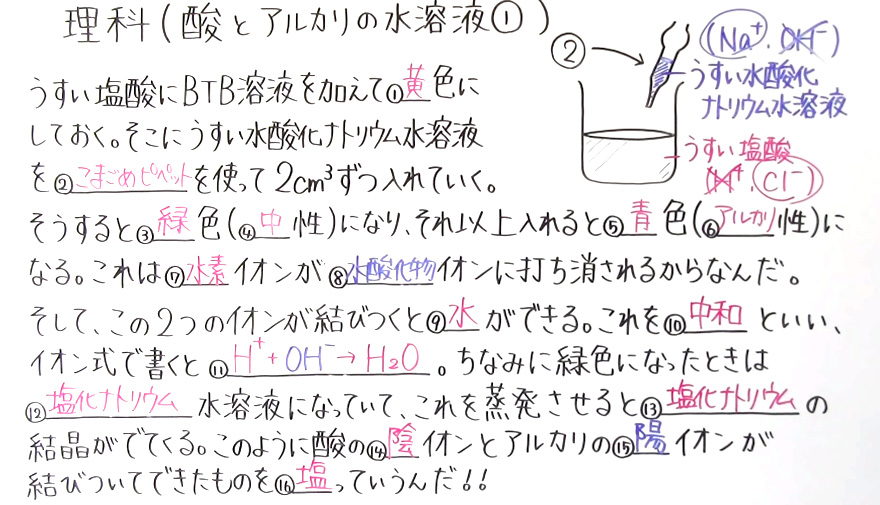 理科(酸とアルカリの水溶液①)
②
(Na⁺・OH⁻)
うすい水酸化
ナトリウム水溶液
うすい塩酸
H⁺・Cl⁻)
うすい塩酸にBTB溶液を加えて①黄色に
しておく。そこにうすい水酸化ナトリウム水溶液
を②こまごめピペットを使って2cm³ずつ入れていく。
そうすると③緑色(④中性)になり、それ以上入れると⑤青色(⑥アルカリ性)に
なる。これは⑦水素イオンが⑧水酸化物イオンに打ち消されるからなんだ。
そして、この2つのイオンが結びつくと⑨水ができる。これを⑩中和といい、
イオン式で書くと⑪H⁺+OH⁻→H₂O。ちなみに緑色になったときは
⑫塩化ナトリウム水溶液になっていて、これを蒸発させると⑬塩化ナトリウムの
結晶がでてくる。このように酸の⑭陰イオンとアルカリの⑮陽イオンが
結びついてできたものを⑯塩っていうんだ!!